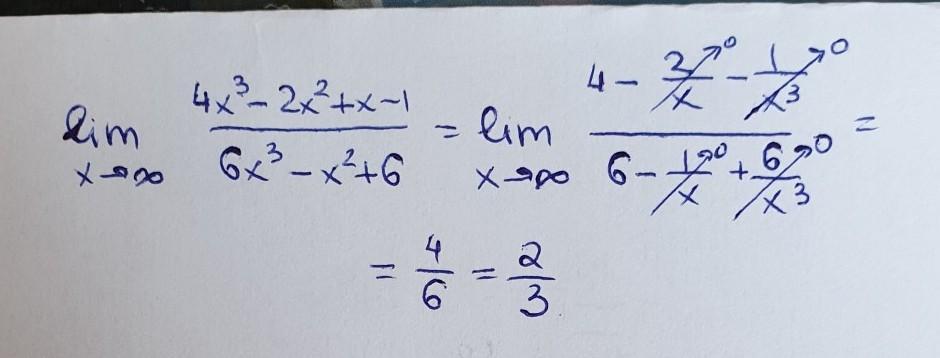 lim x→∞ (4x³ − 2x² + x − 1)/(6x³ − x² + 6) = lim x→∞ (4 − 2/x↗0 − 1/x³↗0)/(6 − 1/x↗0 + 6/x³↗0) =
= 4/6 = 2/3